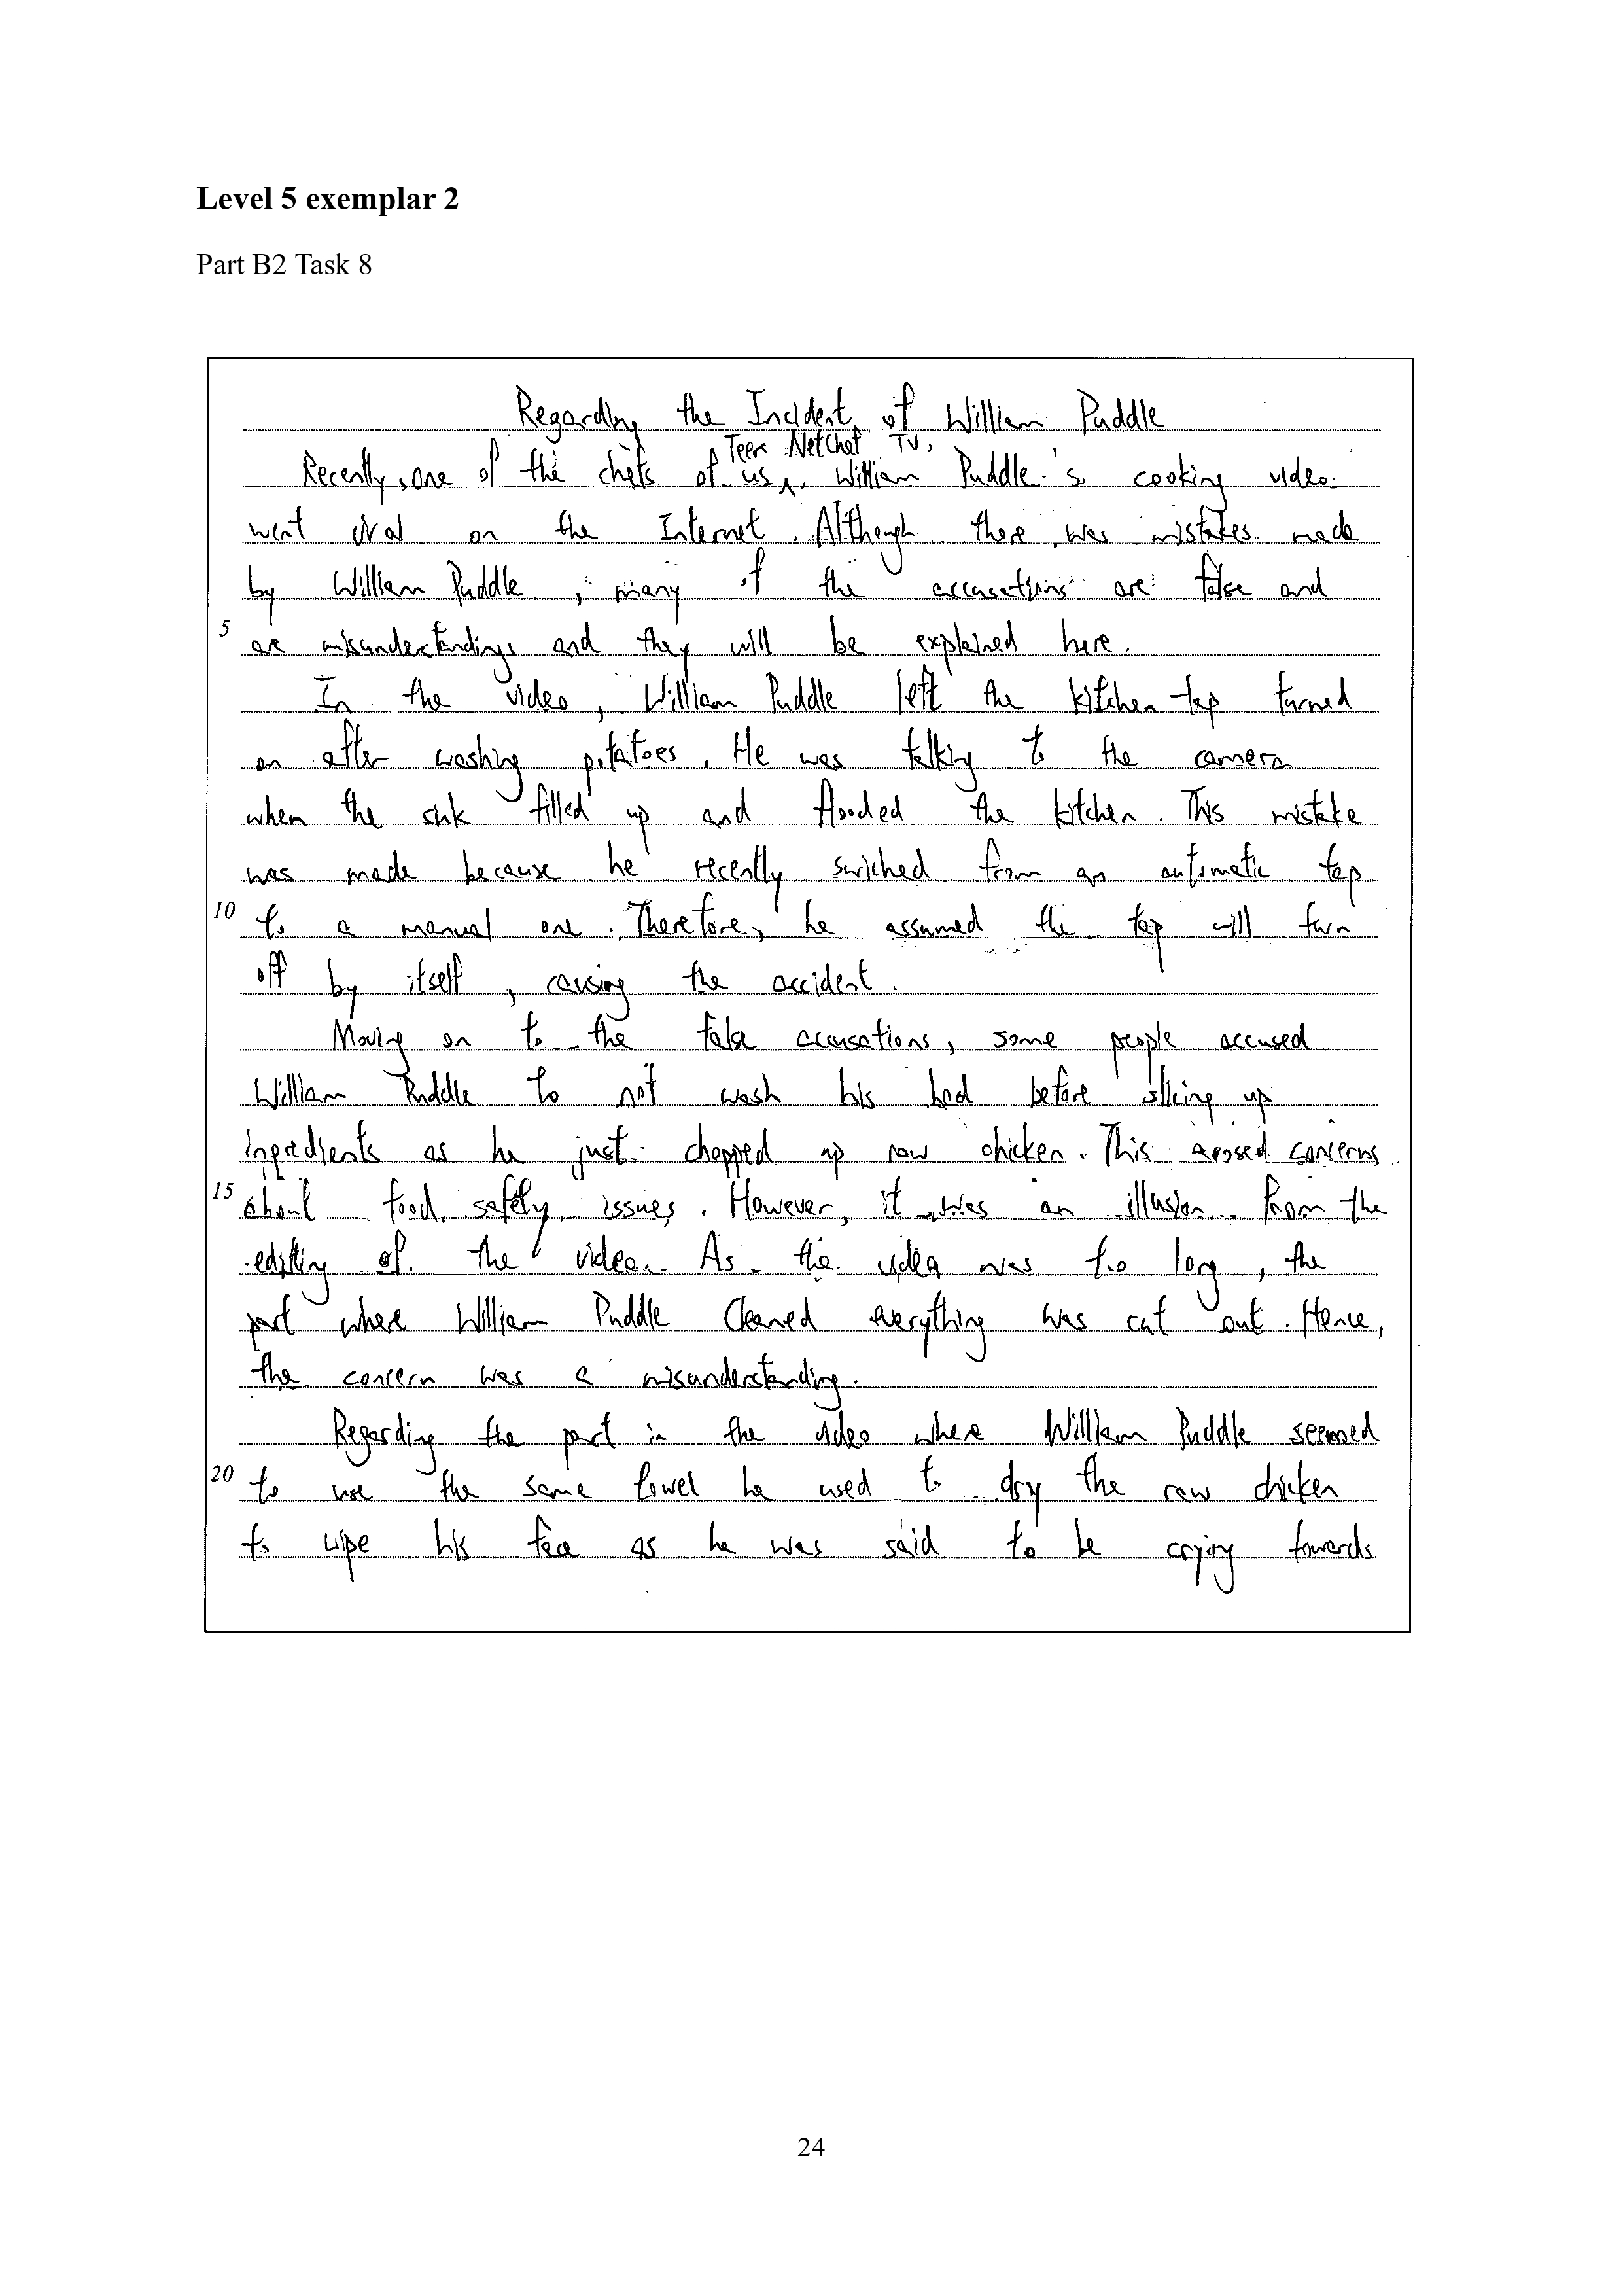 Level 5 exemplar 2
Part B2 Task 8
Regarding the Incident of William Puddle
Teen NetChat TV,
Recently, one of the chefs of us ^, William Puddle's cooking video
went viral on the Internet. Although there was mistakes made
by William Puddle, many of the accusations are false and
5 are misunderstandings and they will be explained here.
In the video, William Puddle left the kitchen tap turned
on after washing potatoes. He was talking to the camera
when the sink filled up and flooded the kitchen. This mistake
was made because he recently swiched from an automatic tap
10 to a manual one. Therefore, he assumed the tap will turn
off by itself, causing the accident.
Moving on to the false accusations, some people accused
William Puddle to not wash his had before slicing up
ingredients as he just chopped up raw chicken. This arosed concerns
15 about food safety issues. However, it was an illusion from the
editing of the video. As the video was too long, the
part where William Puddle cleaned everything was cut out. Hence,
the concern was a misunderstanding.
Regarding the part in the video where William Puddle seemed
20 to use the same towel he used to dry the raw chicken
to wipe his face as he was said to be crying towards
24